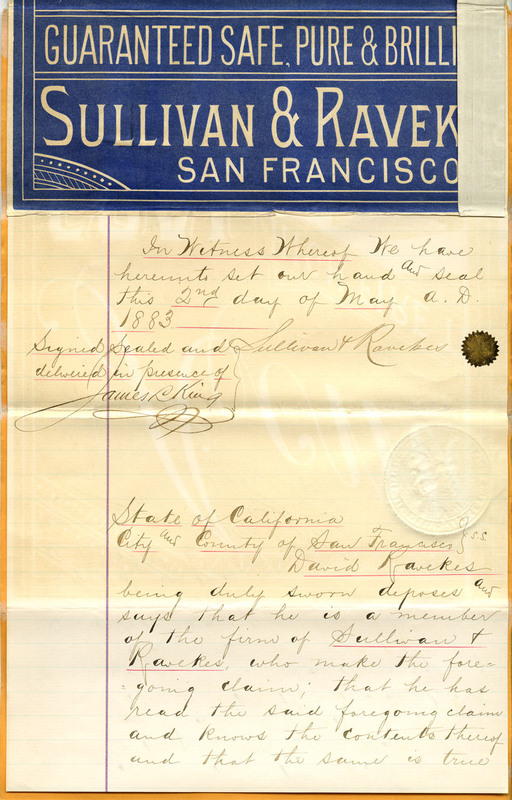 GUARANTEED SAFE, PURE & BRILLI
SULLIVAN & RAVEK
SAN FRANCISCO
In Witness Whereof We have
hereunto set our hand and seal
this 2nd day of May A. D.
1883
Signed Sealed and
delivered in presence of
James C King
Sullivan & Ravekes
State of California
City and County of San Francisco } ss.
David Ravekes
being duly sworn deposes and
says that he is a member
of the firm of Sullivan &
Ravekes, who make the fore=
=going claim; that he has
read the said foregoing claim
and knows the contents thereof
and that the same is true